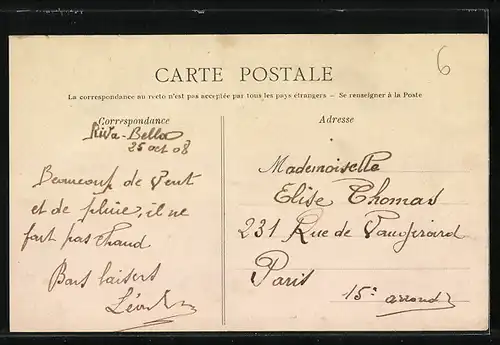 6
CARTE POSTALE
La correspondance au recto n'est pas acceptée par tous les pays étrangers – Se renseigner à la Poste
Correspondance
Riva-Bella
25 oct 08
Beaucoup de Vent
et de pluie, il ne
fait pas chaud
Bons baisers
Adresse
Mademoiselle
Elise Thomas
231 Rue de Vaugirard
Paris
15e arrondt